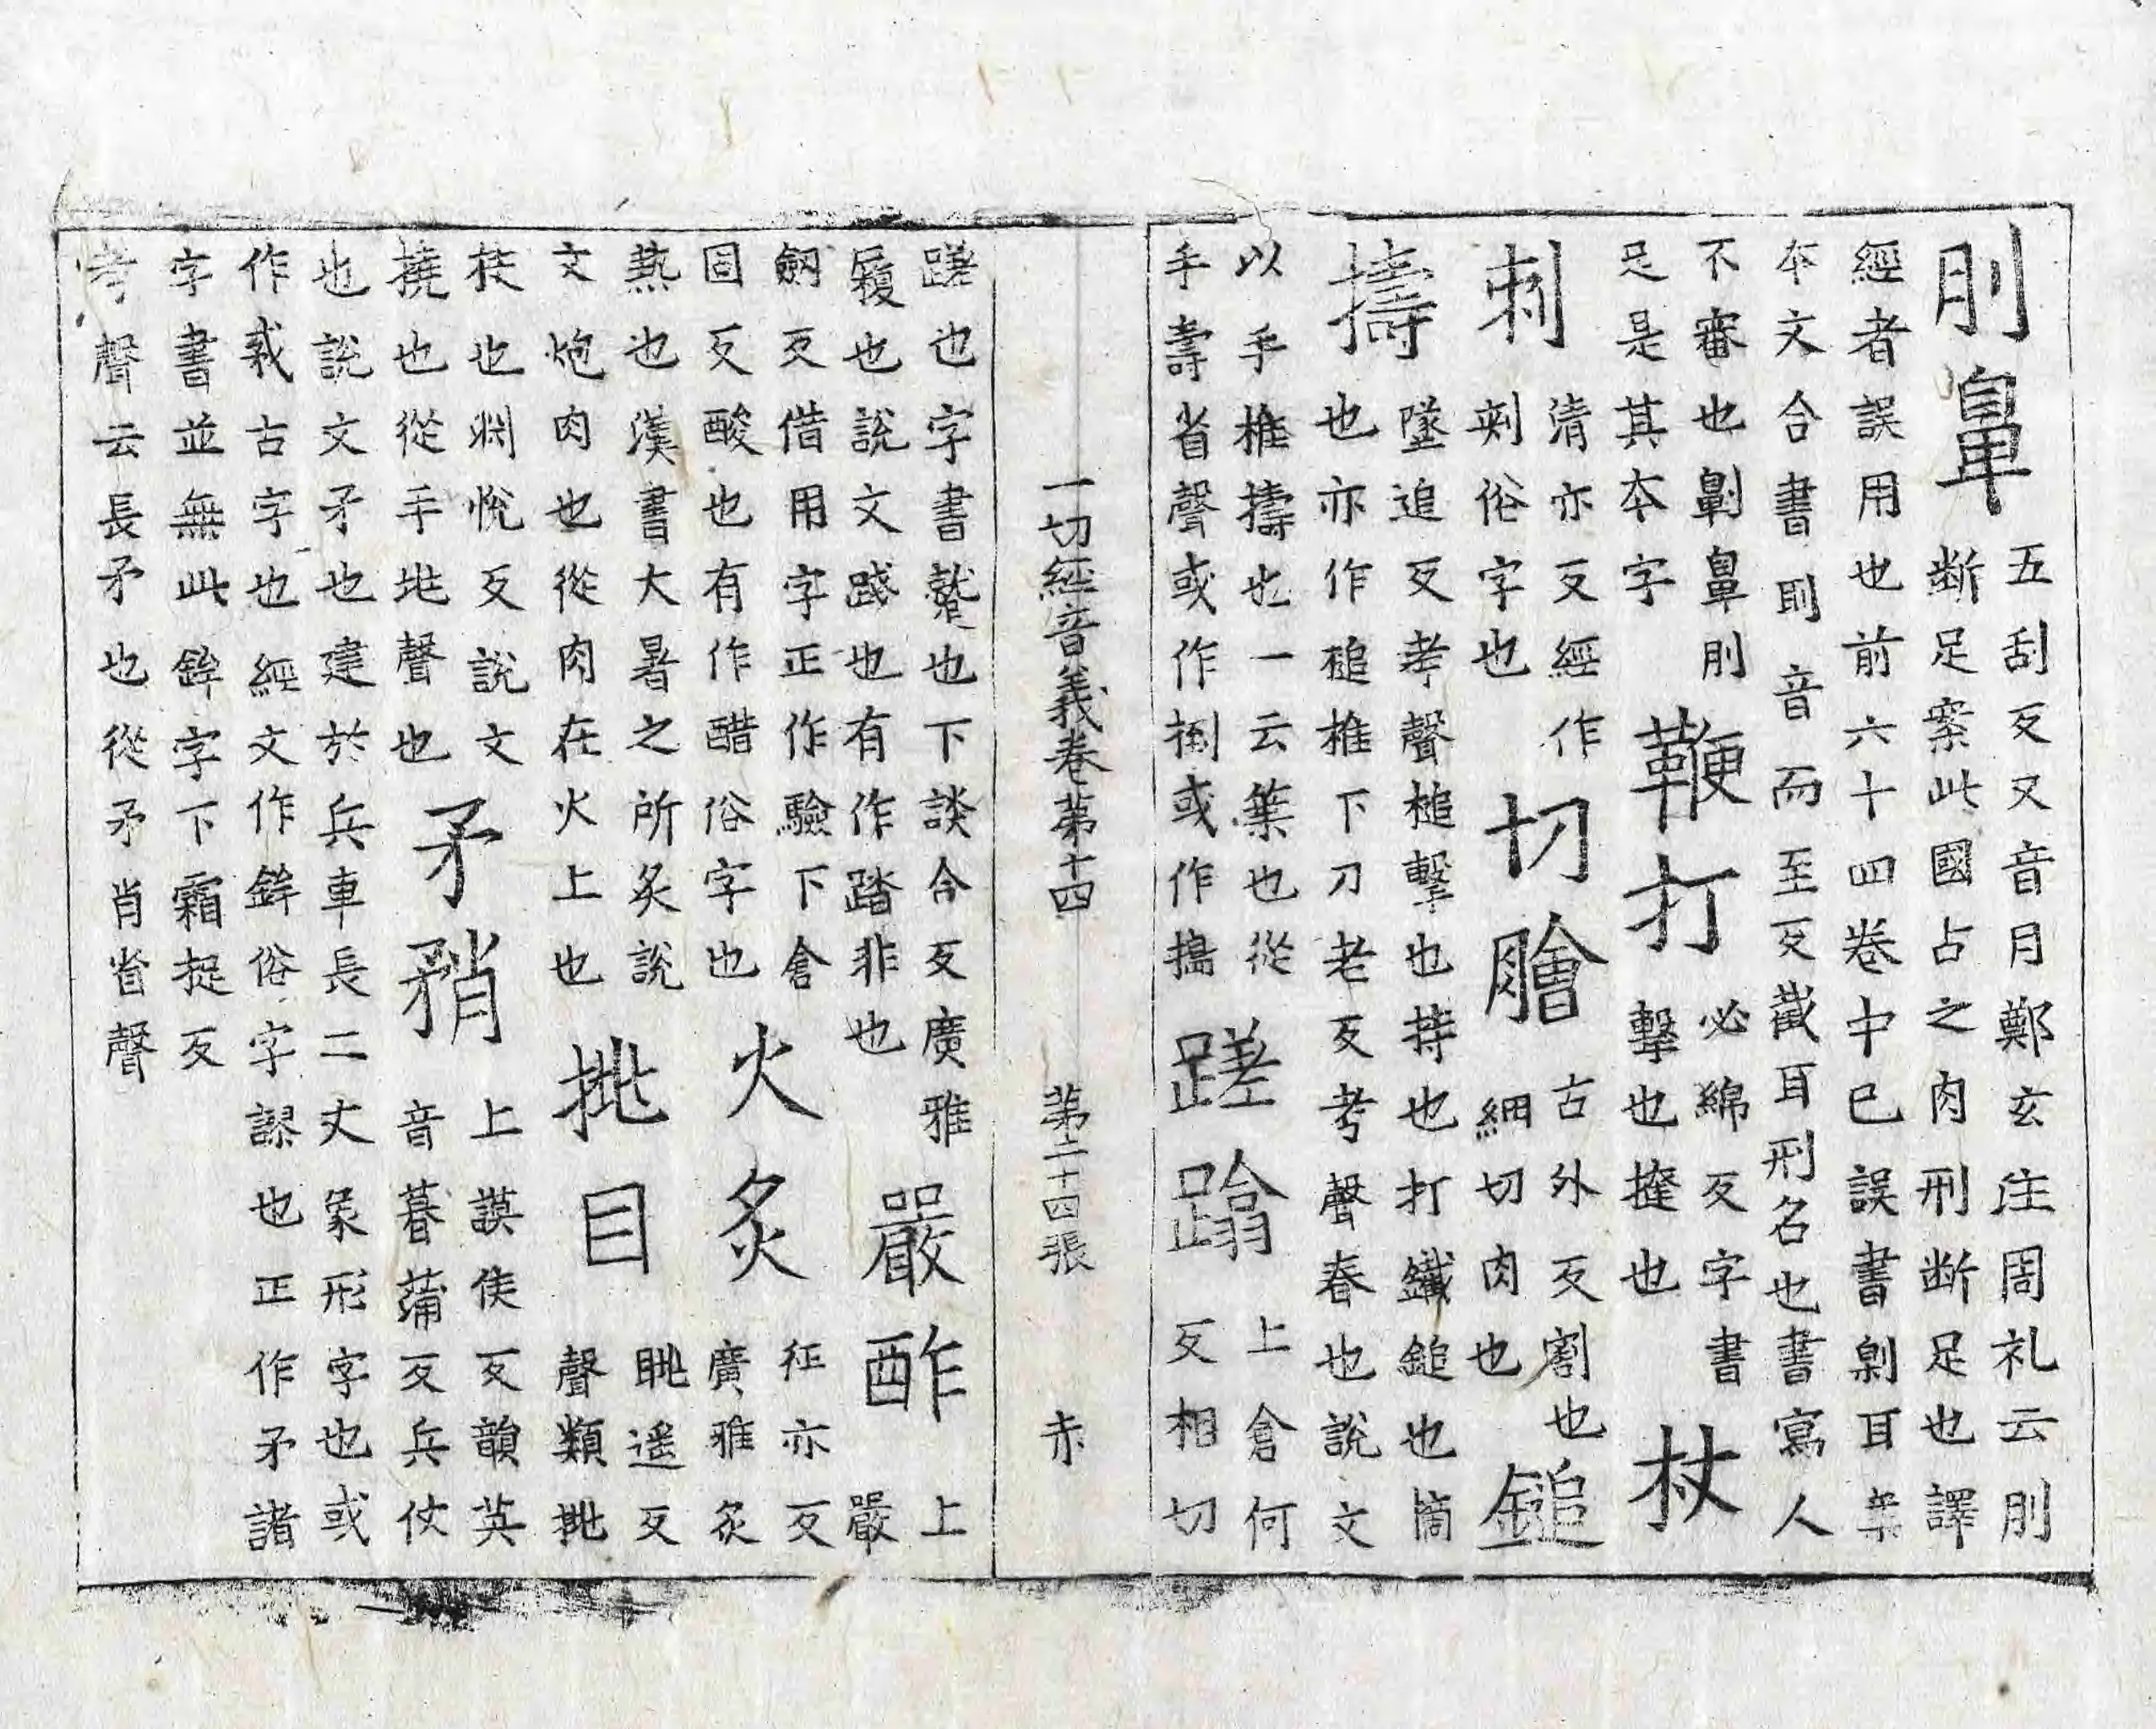 刖鼻
五刮反又音月鄭玄注周礼云刖
断足案此國占之肉刑断足也譯
經者誤用也前六十四卷中已誤書劓耳案
本文合書刵音而至反截耳刑名也書寫人
不審也劓鼻刖
足是其本字
鞭打
必綿反字書
擊也撻也
杖
刺
清亦反經作
刾俗字也
切膾
古外反割也
細切肉也
鎚
擣
墜追反考聲槌擊也持也打鐵鎚也箇
也亦作磓椎下刀老反考聲舂也說文
以手椎擣也一云築也從
手壽省聲或作捯或作搗
蹉蹹
上倉何
反相切
一切經音義卷第十四 第二十四張 赤
蹉也字書蹔也下談合反廣雅
履也說文踐也有作踏非也
嚴酢
上
嚴
釼反借用字正作驗下倉
固反酸也有作醋俗字也
火炙
征亦反
廣雅炙
熱也漢書大暑之所炙說
文炮肉也從肉在火上也
挑目
眺遥反
聲類挑
抉也渕悅反說文
撓也從手兆聲也
矛矟
上謨侯反韻英
音暮蒲反兵仗
也說文矛也建於兵車長二丈象形字也或
作𢦧古字也經文作鉾俗字謬也正作矛諸
字書並無此鉾字下霜捉反
考聲云長矛也從矛肖省聲